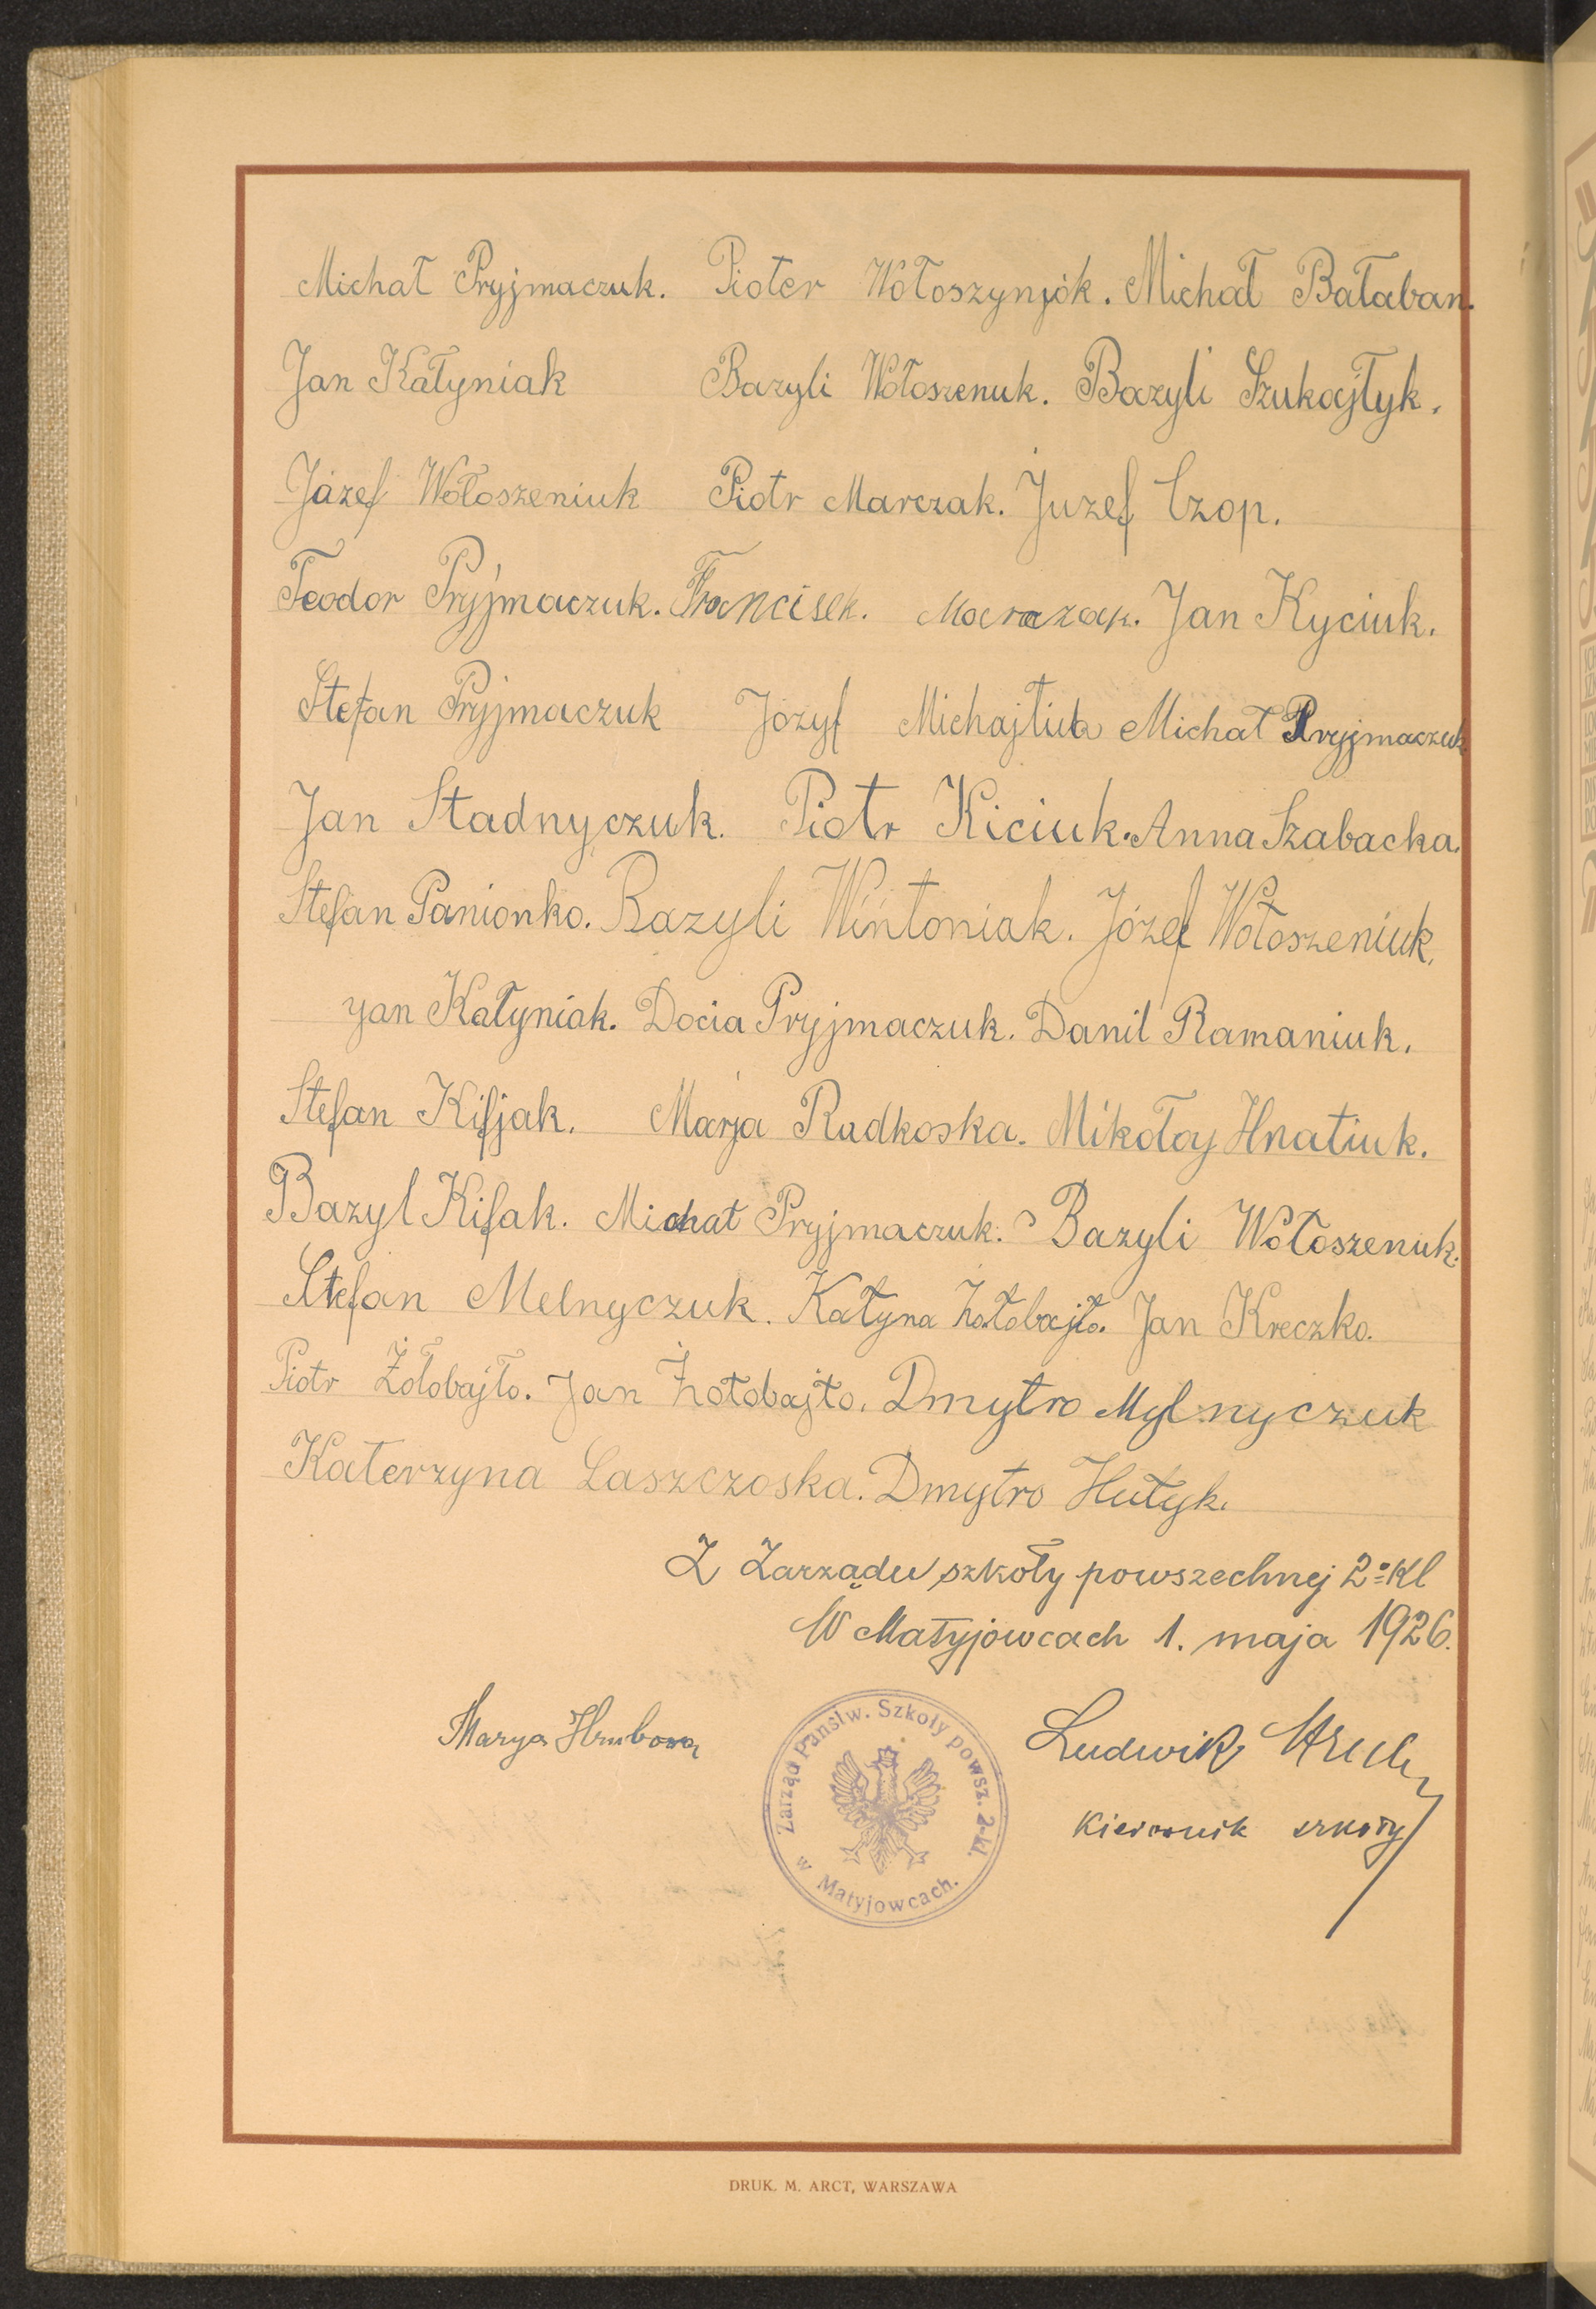 Michał Pryjmaczuk. Pioter Wołoszynjók. Michał Bałaban.
Jan Kałyniak Bazyli Wołoszenuk. Bazyli Szukajłyk.
Józef Wołoszeniuk Piotr Marczak. Juzef Czop.
Teodor Pryjmaczuk. Francisek. Jan Kyciuk.
Stefan Pryjmaczuk Józyf Michajliuk Michał Pryjmaczuk
Jan Stadnyczuk. Piotr Kiciuk. Anna Szabacka.
Stefan Panionko. Bazyli Wintoniak. Józef Wołoszeniuk.
yan Kałyniak. Docia Pryjmaczuk. Danił Ramaniuk.
Stefan Kifjak. Marja Rudkoska. Mikołaj Hnatiuk.
Bazyl Kifak. Michał Pryjmaczuk. Bazyli Wołoszenuk.
Stefan Melnyczuk. Katyna Żołobajło. Jan Kreczko.
Piotr Żołobajło. Jan Żołobajło. Dmytro Mylnyczuk
Katerzyna Laszczoska. Dmytro Hutyk.
Z Zarządu szkoły powszechnej 2-kl
W Matyjowcach 1. maja 1926.
Marya Hrubowa Ludwik Hruby
Kierownik szkoły
Zarząd Państw. Szkoły powsz. 2-kl.
w Matyjowcach.
DRUK. M. ARCT, WARSZAWA